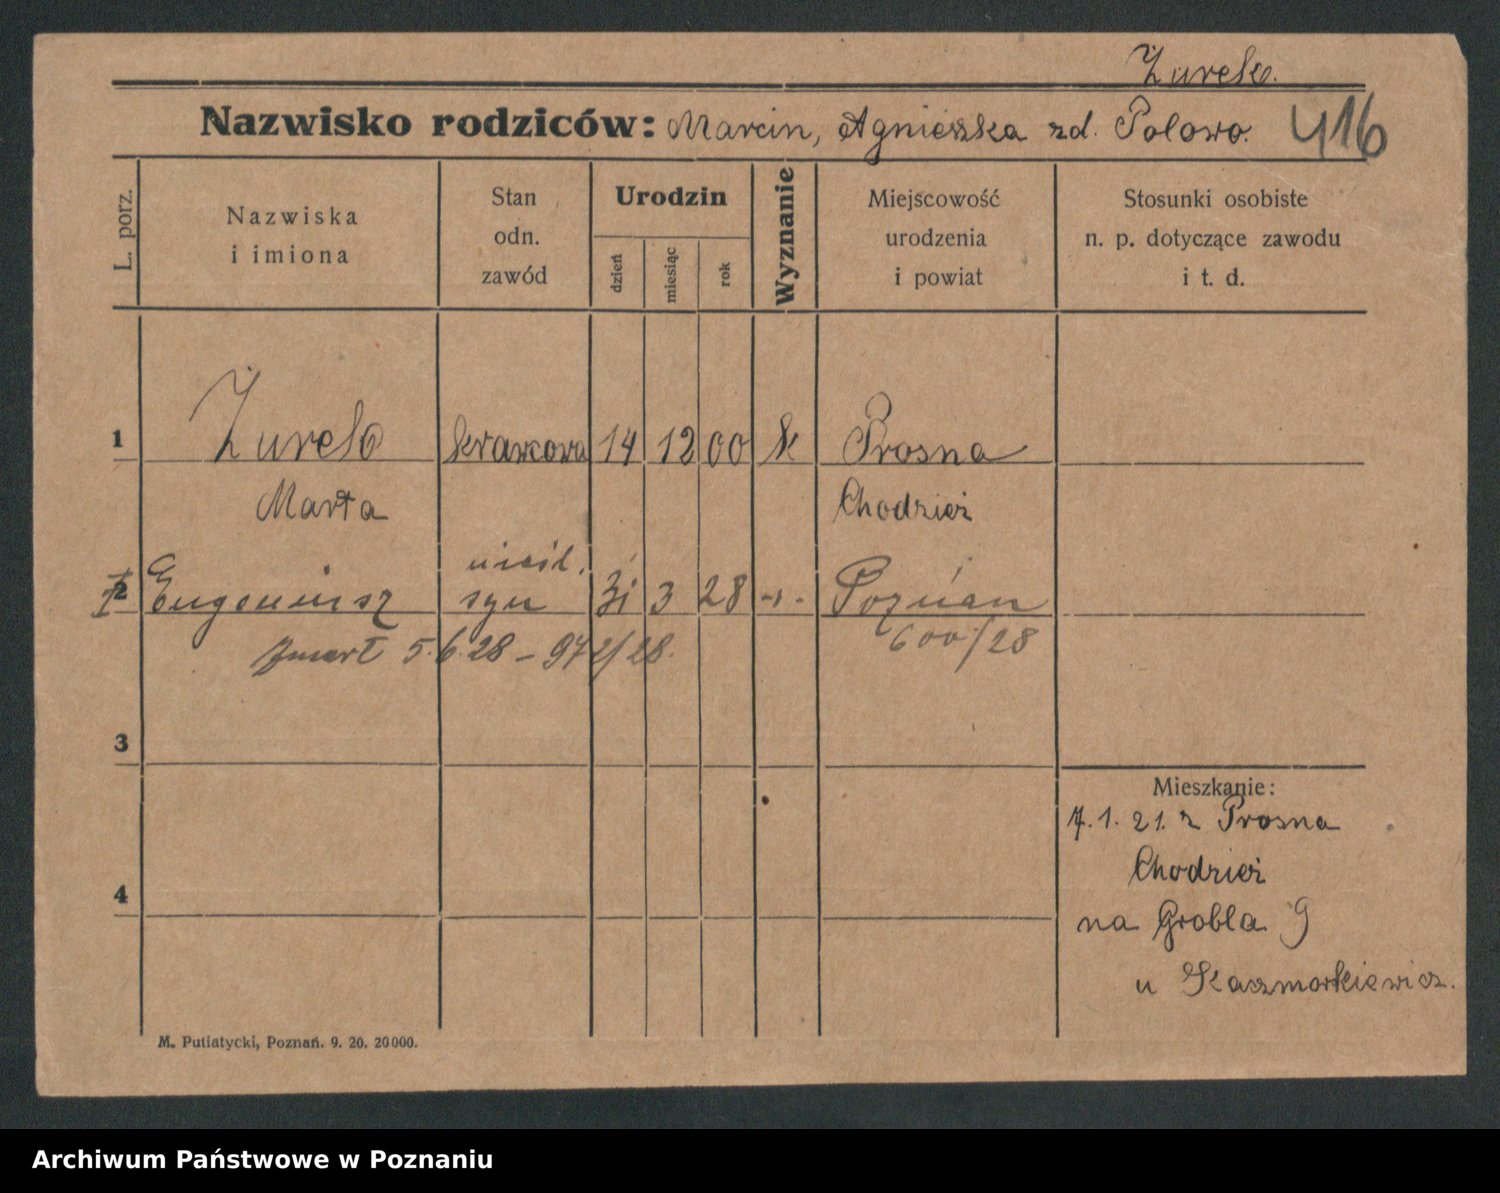 Żurek.
Nazwisko rodziców: Marcin, Agnieszka zd. Polowo. 416
L. porz.
Nazwiska i imiona
Stan odn. zawód
Urodzin
dzień miesiąc rok
Wyznanie
Miejscowość urodzenia i powiat
Stosunki osobiste n. p. dotyczące zawodu i t. d.
1 Żurek krawcowa 14 12 00 k Prosna
Marta Chodzież
nieśl.
2 Eugeniusz syn 31 3 28 -„- Poznań
zmarł 5.6.28 – 972/28. 600/28
3
4
Mieszkanie:
7.1.21. z Prosna
Chodzież
na Grobla 9
u Kaczmarkiewicz.
M. Putiatycki, Poznań. 9. 20. 20000.
Archiwum Państwowe w Poznaniu